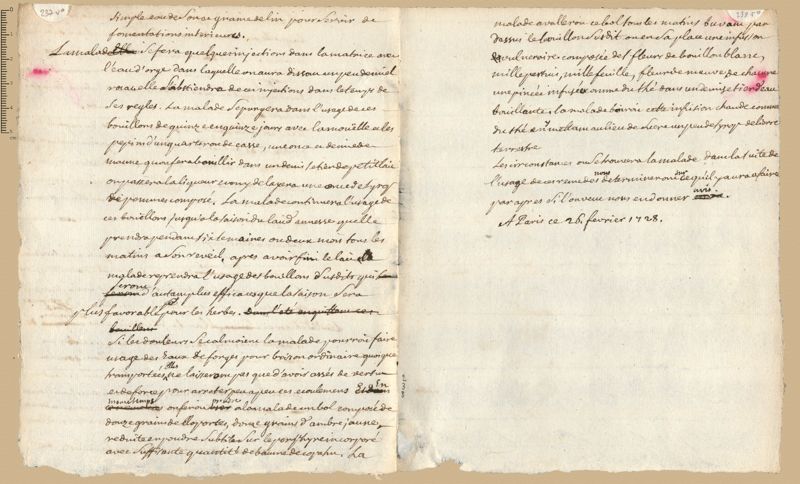 237 v°
simple eau de son et graine de lin pour servir de
fomentations interieures.
La malade se fera quelque injections dans la matrice avec
l'eau d'orge dans laquelle on aura dissou un peu de miel
rosat elle s'abstiendra de ces injections dans le tems de
ses regles. La malade se purgera dans l'usage de ces
bouillons de quinze en quinze jours avec la mouëlle et les
pepin d'un quarteron de casse, une once et demie de
manne qu'on fera bouillir dans un demi setier de petit lait
on passera la liqueur et on y delayera une once de syrop
de pommes composé. La malade continuera l'usage de
ces bouillons jusqu'a la saison du lait d'anesse quelle
prendra pendant six semaines ou deux mois tous les
matins a son reveil, apres avoir fini le lait la
malade reprendra l'usage des bouillons susdits qui
seront d'autant plus efficaces que la saison sera
plus favorable pour les herbes.
Si les douleurs se calmoient la malade pourroit faire
usage des Eaux de forges pour boisson ordinaire quoique
transportées, elles ne laisseront pas que d'avoir assés de vertu
et de force pour arreter peu a peu ces ecoulemens En
mesme temps on feroit prendre a la malade un bol composé de
douze grains de cloportes, douze grains d'ambre jaune,
reduite en poudre subtile sur le porphyre incorporé
avec suffisante quantité de baume de copahu. La
malade avallera ce bol tous les matins buvant par
dessus le bouillon susdit ou en sa place une infusion
vulneraire composée de fleurs de bouillon blanc,
millepertuis, millefeuille, fleur de mauve de chacune
une pincée infusée comme du thé dans un demi setier d'eau
bouillante, la malade boira cette infusion chaude comme
du thé en y mettant au lieu de sucre un peu de syrop de lierre
terrestre
Les circonstances ou se trouvera la malade dans la suite de
l'usage de ces remedes nous determineront sur ce qu'il y aura a faire
par apres si l'on veut nous en donner avis.
A Paris ce 26. fevrier 1728.